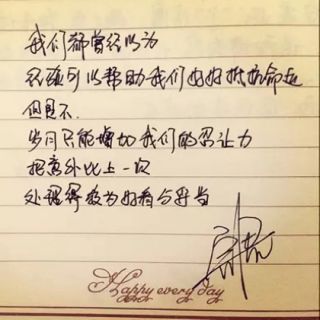 我们都曾经以为
经验可以帮助我们好好抵抗命运
但是不
岁月只能增加我们的忍让力
把意外比上一次
处理得较为好看与妥当
Happy every day